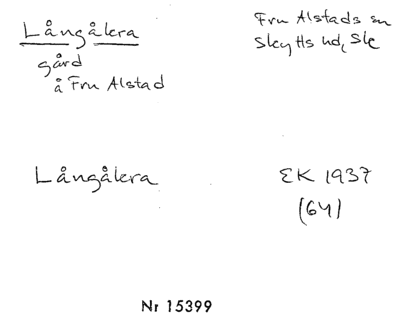 Långåkra
gård
å Fru Alstad
Fru Alstads sn
Skytts hd, Sk
Långåkra
EK 1937
(64)
Nr 15399